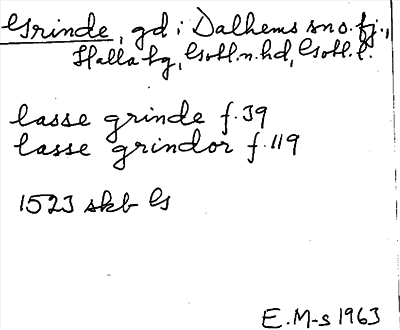 Grinde, gd i Dalhems sn o. fj.,
Halla fg, Gotl. n. hd, Gotl. l.
lasse grinde f. 39
lasse grindor f. 119
1523 skb G
E. M-s 1963